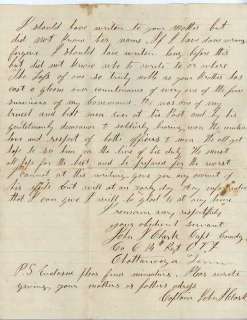 I should have written to your Mother but
did not know her name. If I have done wrong
forgive. I should have written long before this
but did not know who to write to or where
The loss of one so truly noble as your Brother has
cast a gloom over countenance of every one of the few
survivors of my command. He was one of my
truest and best men ever at his Post and by his
gentlemanly demeanor & soldierly bearing won the
love and respect of both officers & men. He all get
to so him on the line of his duty. We must
all hope for the best, and be prepared for the worst
I cannot at this writing give you any account of
his effects but will at an early day. Any information
that I can give I will be glad to at any time
I remain very respectfully
your obedient servant
John J Clark Capt Comdg
Co C 14th Rgt
Chattanooga Tenn
P.S. Enclosed plase find miniature. Please write
giving your mothers or fathers address
Captain John J Clark